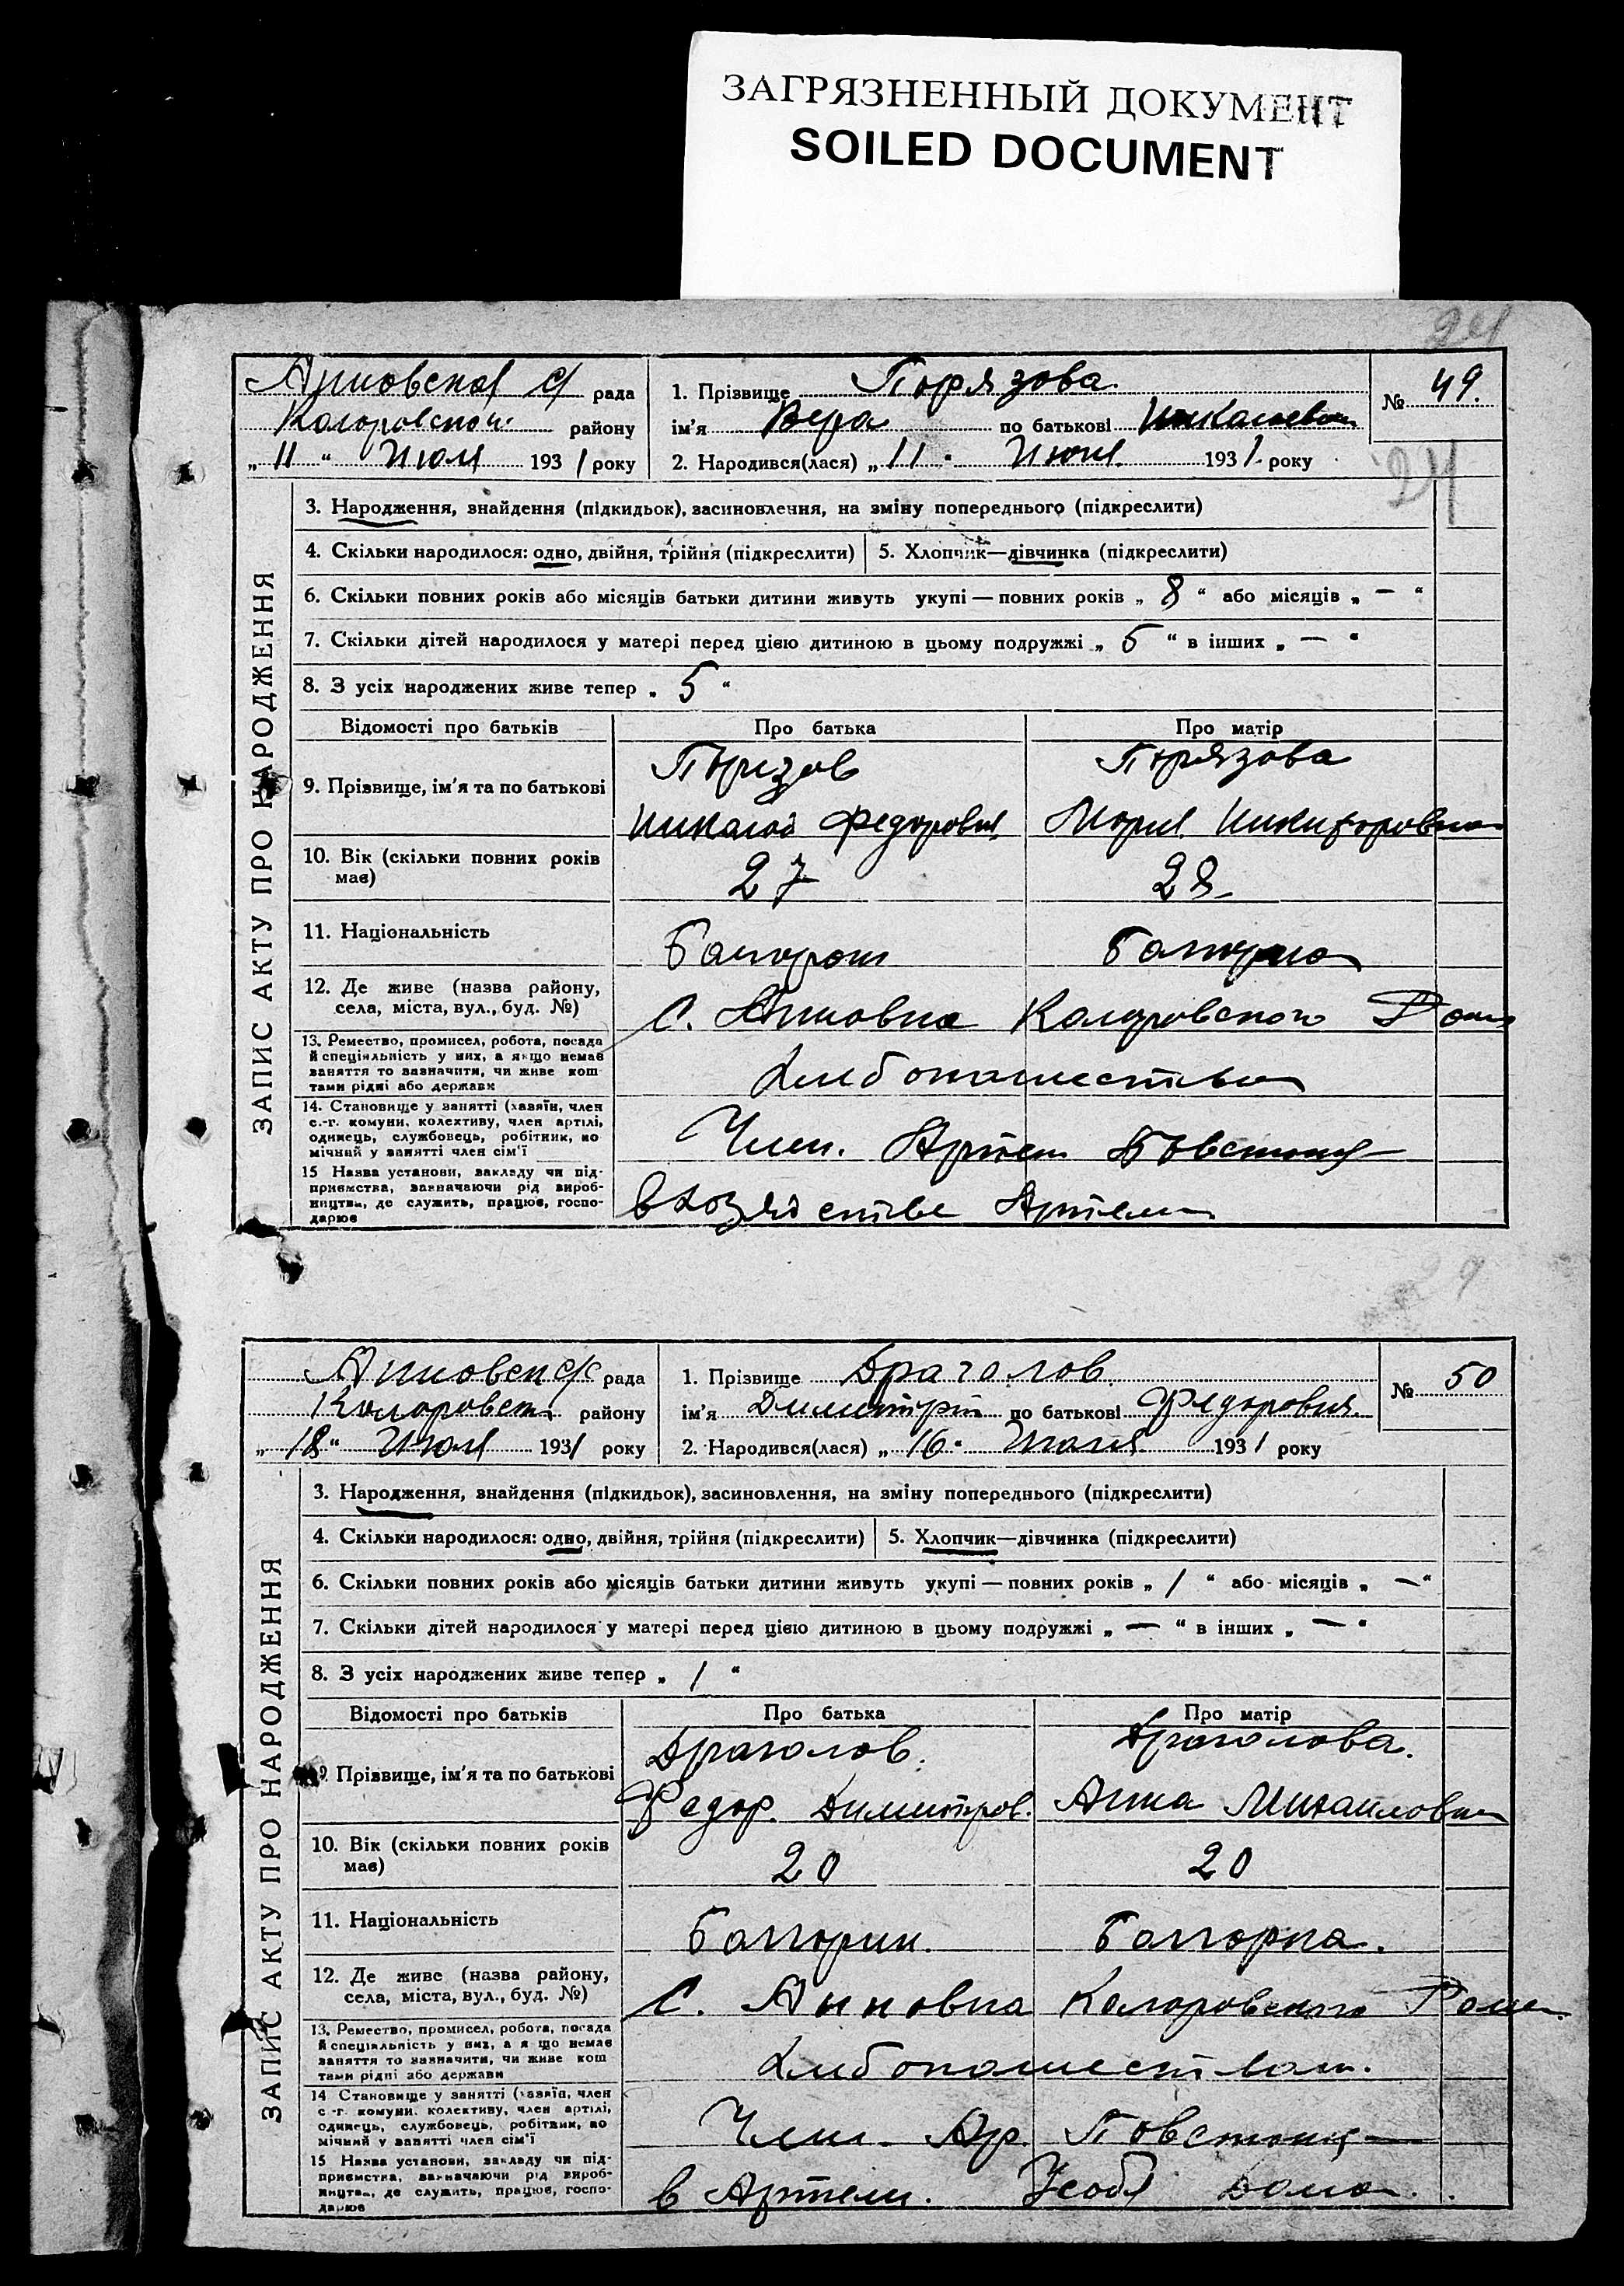 ЗАГРЯЗНЕННЫЙ ДОКУМЕНТ
SOILED DOCUMENT
24
ЗАПИС АКТУ ПРО НАРОДЖЕННЯ
рада
1. Прізвище Пюрязова
№ 49.
району
ім'я Вера по батькові
„ 11 “ Июля 1931 року
2. Народився(лася) „ 11 “ 1931 року
24
3. Народження, знайдення (підкидьок), засиновлення, на зміну попереднього (підкреслити)
4. Скільки народилося: одно, двійня, трійня (підкреслити)
5. Хлопчик—дівчинка (підкреслити)
6. Скільки повних років або місяців батьки дитини живуть укупі — повних років „ 8 “ або місяців „ — “
7. Скільки дітей народилося у матері перед цією дитиною в цьому подружжі „ 5 “ в інших „ — “
8. З усіх народжених живе тепер „ 5 “
Відомості про батьків
Про батька
Про матір
9. Прізвище, ім'я та по батькові
Пюрязова
Николай Федорович
10. Вік (скільки повних років має)
27
28
11. Національність
12. Де живе (назва району, села, міста, вул., буд. №)
С.
13. Ремество, промисел, робота, посада
й спеціяльність у них, а якщо немає
заняття то зазначити, чи живе кош
тами рідні або держави
14. Становище у занятті (хазяїн, член
с.-г. комуни, колективу, член артілі,
одинець, службовець, робітник, по
мічний у занятті член сім'ї
Член.
15 Назва установи, закладу чи під-
приємства, зазначаючи рід вироб-
ництва, де служить, працює, госпо-
дарює
ЗАПИС АКТУ ПРО НАРОДЖЕННЯ
рада
1. Прізвище Драголов.
№ 50
району
ім'я Димитрий по батькові Федорович.
„ 18 “ Июля 1931 року
2. Народився(лася) „ 16 “ Июля 1931 року
3. Народження, знайдення (підкидьок), засиновлення, на зміну попереднього (підкреслити)
4. Скільки народилося: одно, двійня, трійня (підкреслити)
5. Хлопчик—дівчинка (підкреслити)
6. Скільки повних років або місяців батьки дитини живуть укупі — повних років „ 1 “ або місяців „ — “
7. Скільки дітей народилося у матері перед цією дитиною в цьому подружжі „ — “ в інших „ — “
8. З усіх народжених живе тепер „ 1 “
Відомості про батьків
Про батька
Про матір
9. Прізвище, ім'я та по батькові
Драголов.
Драголова.
Федор. Димитров.
Анна Михаиловна
10. Вік (скільки повних років має)
20
20
11. Національність
Болгорин.
Болгорка.
12. Де живе (назва району, села, міста, вул., буд. №)
С. Анновка Коларовского
13. Ремество, промисел, робота, посада
й спеціяльність у них, а якщо немає
заняття то зазначити, чи живе кош
тами рідні або держави
14 Становище у занятті (хазяїн, член
с-г. комуни, колективу, член артілі,
одинець, службовець, робітник, по
мічний у занятті член сім'ї
15 Назва установи, закладу чи під-
приємства, зазначаючи рід вироб-
ництва, де служить, працює, госпо-
дарює
в Артели.